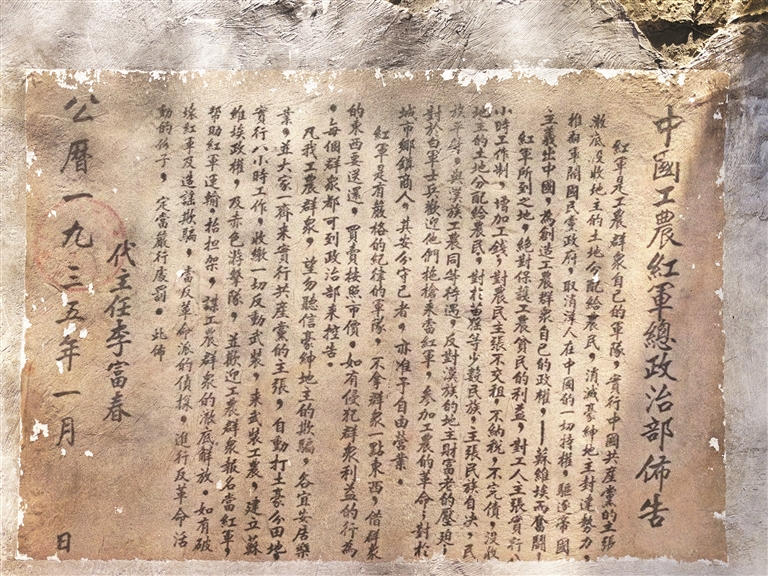 中國工農紅軍總政治部佈告
紅軍是工農群衆自己的軍隊，實行中國共產黨的主張
澈底沒收地主的土地分配給農民，消滅豪紳地主封建勢力，
推翻軍閥國民黨政府，取消洋人在中國的一切特權，驅逐帝國
主義出中國，為創造工農群衆自己的政權，——蘇維埃而奮鬥！
紅軍所到之地，絕對保護工農貧民的利益，對工人主張實行八
小時工作制，增加工錢，對農民主張不交租，不納稅，不完債，沒收
地主的土地分配給農民，對於苗猺等少數民族，主張民族自決，民
族平等，與漢族工農同等待遇，反對漢族的地主財富老的壓迫！
對於白軍士兵歡迎他們拖槍來當紅軍，參加工農的革命！對於
城市鄉鎮商人，其安分守己者，亦准予自由營業。
紅軍是有嚴格的紀律的軍隊，不拿群衆一點東西，借群衆
的東西要送還，買賣按照市價。如有侵犯群衆利益的行為
，每個群衆都可到政治部來控告。
凡我工農群衆，望勿聽信豪紳地主的欺騙，各宜安居樂
業，並大家一齊來實行共產黨的主張，自動打土豪分田地，
實行八小時工作，收繳一切反動武裝，來武裝工農，建立蘇
維埃政權，及赤色游擊隊，並歡迎工農群衆報名當紅軍，
幫助紅軍運輸，抬担架，謀工農群衆的澈底解放。如有破
壞紅軍及造謠欺騙，當反革命派的偵探，進行反革命活
動的份子，定當嚴行處罰。此佈
代主任李富春
公曆一九三五年一月 日